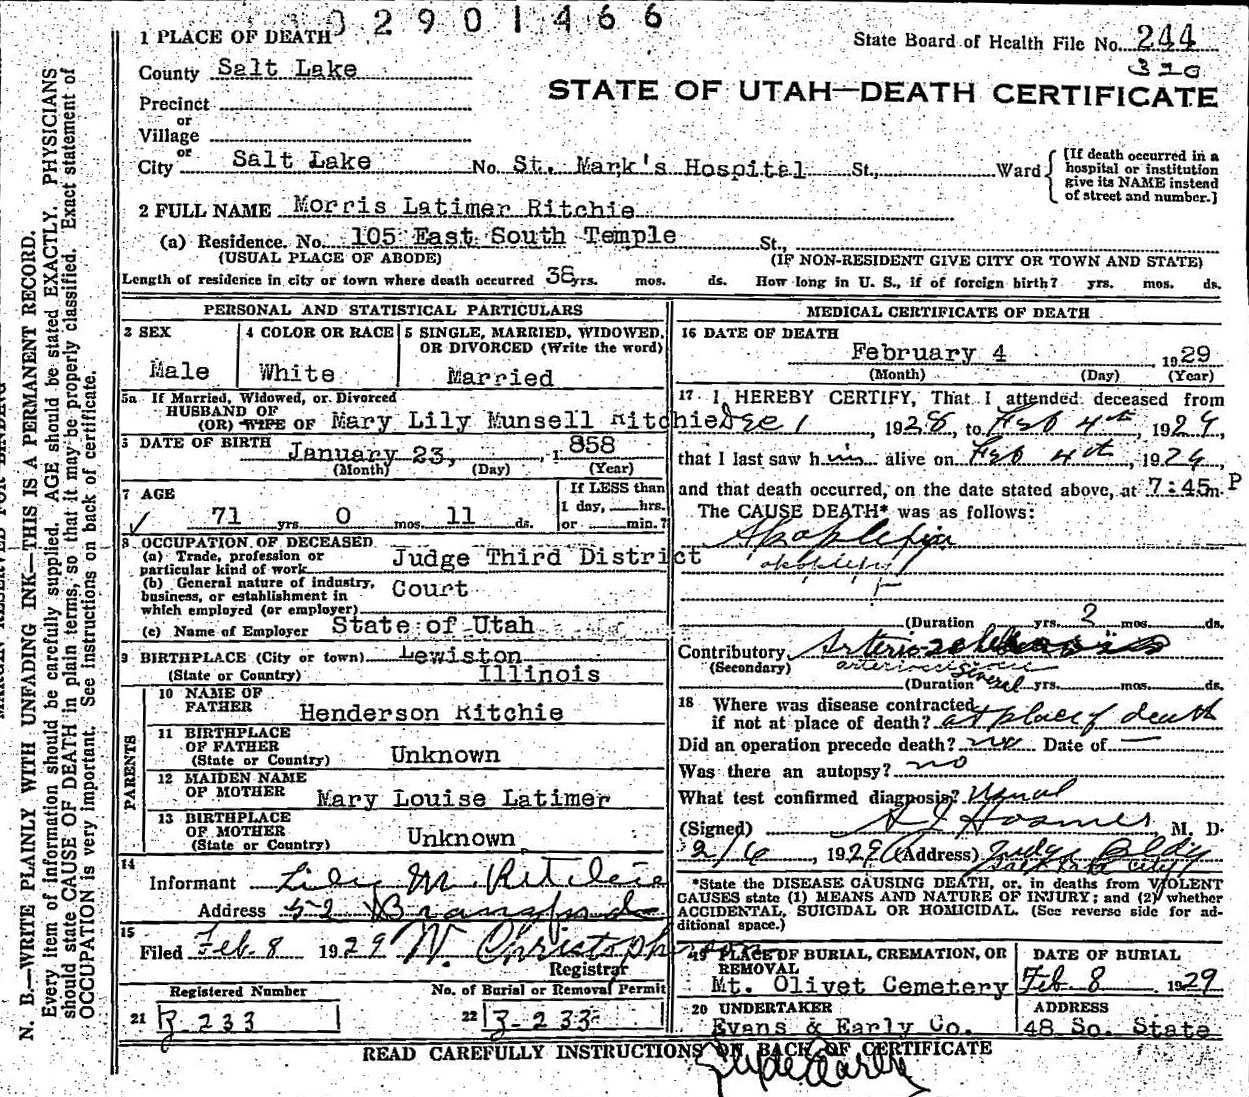 02901466
1 PLACE OF DEATH
State Board of Health File No. 244
County Salt Lake
320
STATE OF UTAH—DEATH CERTIFICATE
Precinct
or
Village
or
City Salt Lake No. St. Mark's Hospital St., Ward
[If death occurred in a
hospital or institution
give its NAME instead
of street and number.]
2 FULL NAME Morris Latimer Ritchie
(a) Residence. No. 105 East South Temple St.,
(USUAL PLACE OF ABODE) (IF NON-RESIDENT GIVE CITY OR TOWN AND STATE)
Length of residence in city or town where death occurred 38 yrs. mos. ds. How long in U. S., if of foreign birth? yrs. mos. ds.
PERSONAL AND STATISTICAL PARTICULARS
3 SEX
Male
4 COLOR OR RACE
White
5 SINGLE, MARRIED, WIDOWED,
OR DIVORCED (Write the word)
Married
5a If Married, Widowed, or Divorced
HUSBAND OF
(OR) WIFE OF Mary Lily Munsell Ritchie
6 DATE OF BIRTH
January 23, 1858
(Month) (Day) (Year)
7 AGE
71 yrs. 0 mos. 11 ds.
If LESS than
1 day, hrs.
or min.?
8 OCCUPATION OF DECEASED
(a) Trade, profession or
particular kind of work Judge Third District
(b) General nature of industry,
business, or establishment in
which employed (or employer) Court
(c) Name of Employer State of Utah
9 BIRTHPLACE (City or town) Lewiston
(State or Country) Illinois
PARENTS
10 NAME OF
FATHER Henderson Ritchie
11 BIRTHPLACE
OF FATHER
(State or Country) Unknown
12 MAIDEN NAME
OF MOTHER Mary Louise Latimer
13 BIRTHPLACE
OF MOTHER
(State or Country) Unknown
14
Informant Lily M. Ritchie
Address 52 Bransford
15
Filed Feb. 8 1929 W. Christopherson
Registrar
Registered Number
21 3-233
No. of Burial or Removal Permit
22 3-233
MEDICAL CERTIFICATE OF DEATH
16 DATE OF DEATH
February 4 1929
(Month) (Day) (Year)
17 I HEREBY CERTIFY, That I attended deceased from
Dec 1, 1928, to Feb 4th, 1929,
that I last saw him alive on Feb 4th, 1929,
and that death occurred, on the date stated above, at 7:45 m. P
The CAUSE DEATH* was as follows:
Apoplexia
(Duration yrs. 2 mos. ds.
Contributory Arteriosclerosis
(Secondary)
(Duration several yrs. mos. ds.
18 Where was disease contracted
if not at place of death? at place of death
Did an operation precede death? no Date of —
Was there an autopsy? no
What test confirmed diagnosis? Usual
(Signed) Hosmer, M. D.
2/6, 1929 (Address) Judge Bldg
Salt Lake City
*State the DISEASE CAUSING DEATH, or, in deaths from VIOLENT
CAUSES state (1) MEANS AND NATURE OF INJURY; and (2) whether
ACCIDENTAL, SUICIDAL OR HOMICIDAL. (See reverse side for ad-
ditional space.)
19 PLACE OF BURIAL, CREMATION, OR
REMOVAL
Mt. Olivet Cemetery
DATE OF BURIAL
Feb. 8 1929
20 UNDERTAKER
Evans & Early Co.
ADDRESS
48 So. State
READ CAREFULLY INSTRUCTIONS ON BACK OF CERTIFICATE
MARGIN RESERVED FOR BINDING
N. B.—WRITE PLAINLY WITH UNFADING INK—THIS IS A PERMANENT RECORD.
Every item of information should be carefully supplied. AGE should be stated EXACTLY. PHYSICIANS
should state CAUSE OF DEATH in plain terms, so that it may be properly classified. Exact statement of
OCCUPATION is very important. See Instructions on back of certificate.